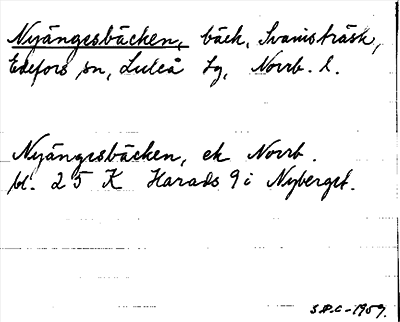 Nyängesbäcken, bäck, Svanisträsk,
Edefors sn, Luleå tg, Norrb. l.
Nyängesbäcken, ek Norrb.
bl. 25 K Harads 9 i Nyberget.
S.P.C-1959.